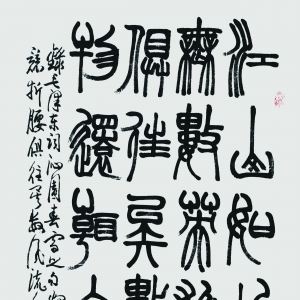 江山如此
無數英
俱往矣數
物還看今
錄毛澤東詞沁園春雪
競折腰俱往矣數風流人